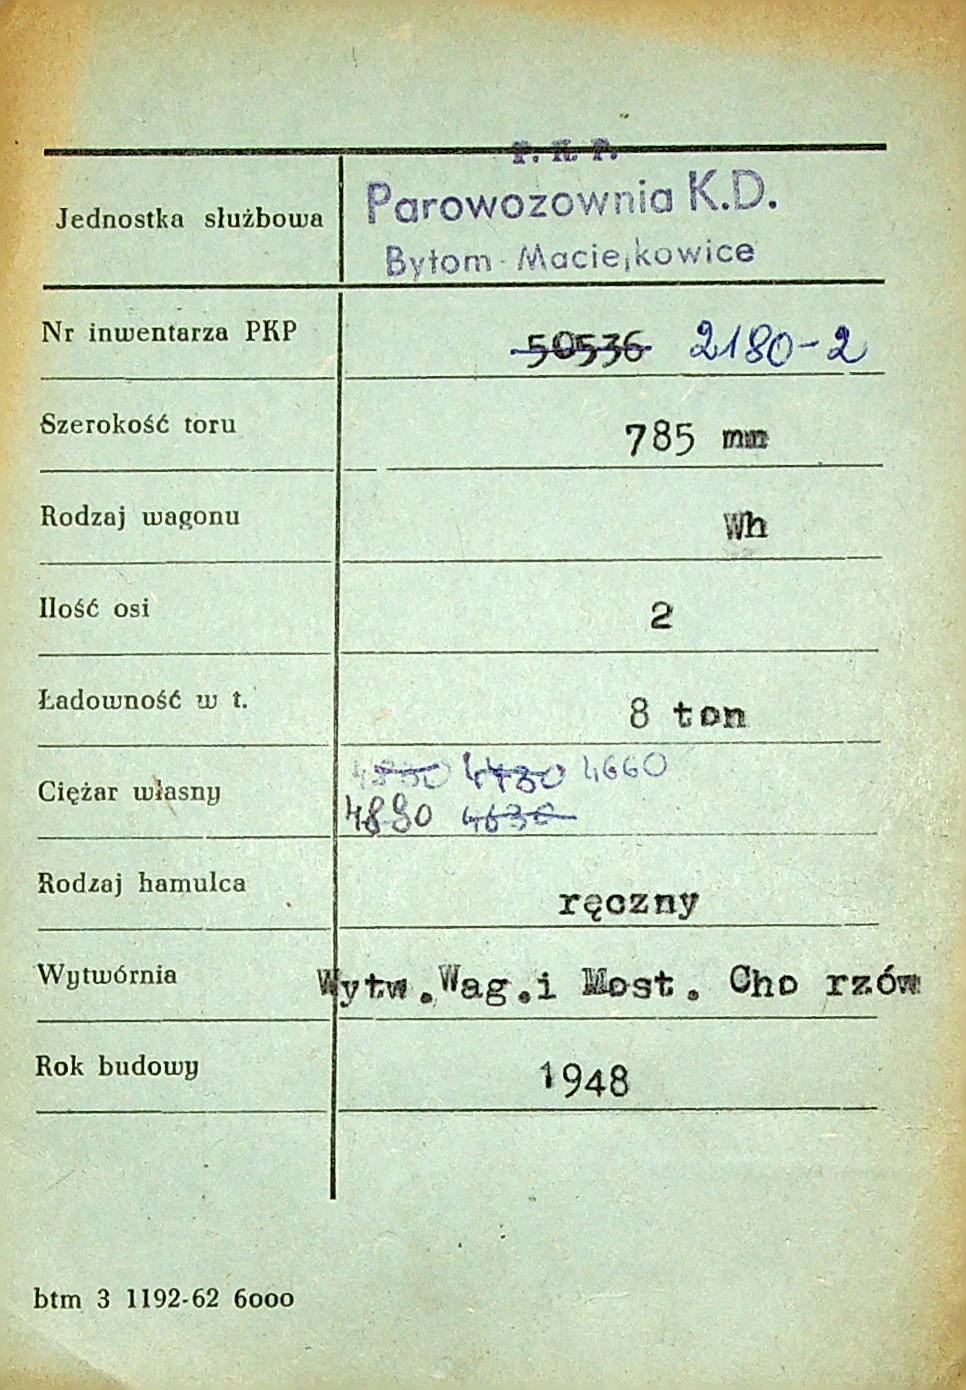 P. K. P.
Jednostka służbowa Parowozownia K.D.
Bytom - Maciejkowice
Nr inwentarza PKP 50536 2180-2
Szerokość toru 785 mm
Rodzaj wagonu Wh
Ilość osi 2
Ładowność w t. 8 ton
4780 4660
Ciężar własny
4880 4630
Rodzaj hamulca ręczny
Wytwórnia Wytw.Wag.i Most. Cho rzów
Rok budowy 1948
btm 3 1192-62 6000